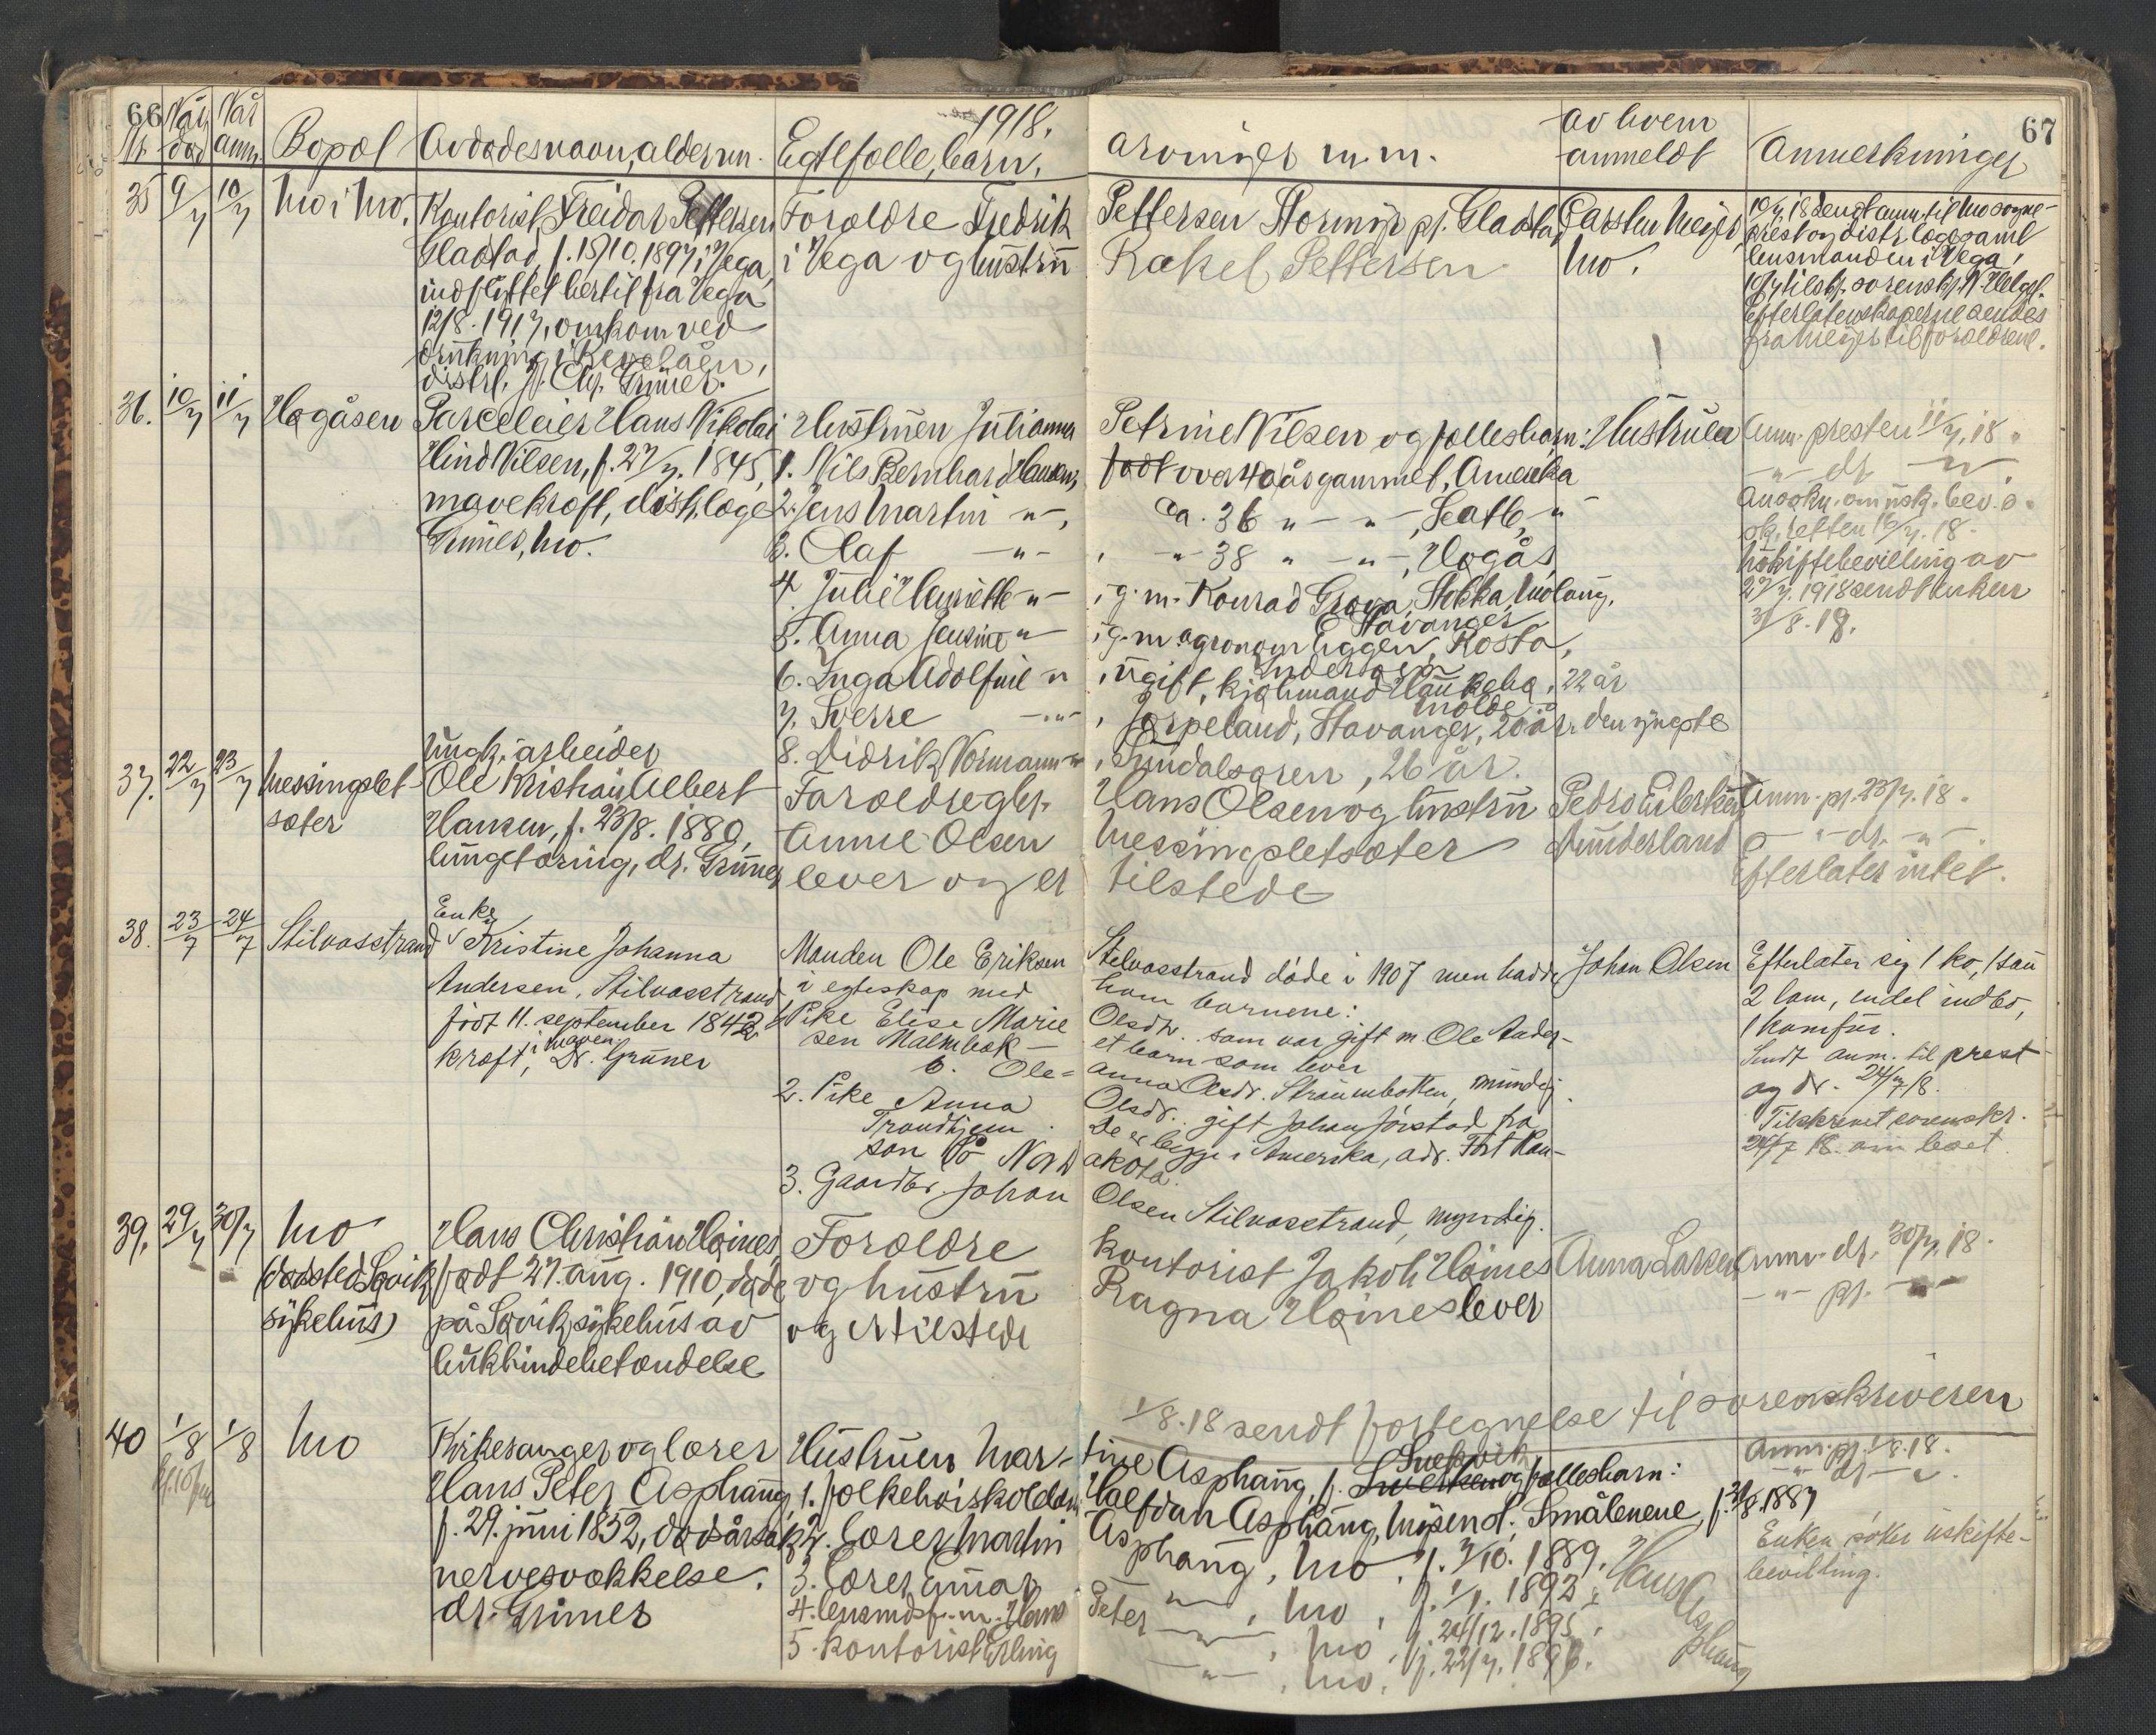 66
1918.
67
Nr. Når død Når anm. Bopæl Avdødes navn, alder m.m. Egtefælle, barn, arvinger m.m. av hvem anmeldt Anmerkninger
35 9/7 10/7 Mo i Mo.
Kontorist Freidar Pettersen
Gladstad, f. 18/10.1897 i Vega,
indflyttet hertil fra Vega
12/8.1917, omkom ved
drukning i
distrl. Grüner.
Forældre Fredrik Pettersen Stormyr pr. Gladstad
i Vega og hustru Rakel Pettersen
Carsten Meijer
Mo.
10/7.18 sendt anm. til Mo sogne-
prest og distr.læge samt
lensmanden i Vega.
Efterlatenskaperne sendes
fra Meijer til forældrene.
36. 10/7 11/7 Høgåsen
Parceleier Hans Nikolai
Hind Nilsen, f. 27/7.1845,
mavekræft, distr.læge
Grüner, Mo.
Hustruen Julianna Petrine Nilsen og fællesbarn:
1. Nils Bernhard Hansen, født over 40 år gammel, Amerika
2. Jens Martin -"-, ca. 36 " -"-, Seatle, "
3. Olaf -"-, -"- 38 " -"-, Høgås
4. Julie Henriette -"-, g.m. Konrad Grova, Stokka, Indlang,
Stavanger
5. Anna Jensine -"-, g.m. agronom Eggen, Røsta,
Inderøen
6. Inga Adolfine -"-, ugift, kjøbmand Haukebø, 22 år
Molde
7. Sverre -"-, Jørpeland, Stavanger, 20 år, den yngste
8. Didrik Normann -"-, Sundalsøren, 26 år.
Hustruen
Anm. presten 11/7.18.
-"- dr. -"-.
uskiftebevilling av
27/7.1918 sendt enken
3/8.18.
37. 22/7 23/7 Messingslet-
sæter
Ungk. arbeider
Ole Kristian Albert
Hansen, f. 23/8.1880,
lungetæring, dr. Grüner
Forældre gbr. Hans Olsen og hustru
Anne Olsen Messingsletsæter
lever og er tilstede
Pedro Eilertsen
Dunderland
Anm. pr. 23/7.18.
-"- dr. -"-.
Efterlater intet.
38. 23/7 24/7 Stilvasstrand
Enke
Kristine Johanna
Andersen, Stilvasstrand
født 11. september 1842
kræft i maven, Dr. Grüner
Manden Ole Eriksen Stilvasstrand døde i 1907 men hadde
i egteskap med ham barnene:
1. Pike Elise Marie Olsdtr. som var gift m. Ole Ander-
sen Malmbæk - et barn som lever
6. Ole- Anna Olsdr. Straumbotten, myndig
2. Pike Anna Olsdr. gift Johan Jørstad fra
Trondhjem. De er begge i Amerika, adr. Fort Ran-
son Co Nord Dakota.
3. Gaardbr Johan Olsen Stilvasstrand, myndig.
Johan Olsen
Efterlater sig 1 ko, 1 sau
2 lam, endel indbo,
1 komfur.
Sendt anm. til prest
og dr. 24/7 18.
Tilskrevet sorenskr.
24/7 18. om boet.
39. 29/7 30/7 Mo
(dødsted Søvik
sykehus)
Hans Christian Høines,
født 27. aug. 1910, døde
på Søvik sykehus av
bukhindebetændelse
Forældre kontorist Jakob Høines
og hustru Ragna Høines lever
og er tilstede
Anna Larsen
Anm. dr. 30/7.18.
-"- pr. -"-
1/8.18 sendt fortegnelse til sorenskriveren
40 1/8 1/8 Mo
Kirkesanger og lærer
Hans Peter Asphaug,
f. 29. juni 1852, dødsårsak
nervesvækkelse.
dr. Grüner
Hustruen Martine Asphaug, f. og fællesbarn:
1. folkehøiskolelær. Halfdan Asphaug, Mysend, Smålenene, f. 21/8.1887
2. Lærer Martin Asphaug, Mo, f. 7/10.1889.
3. Lærer Einar -"-, Mo, f. 1/1.1892.
4. lensmdsf.m. Hans Peter -"-, Mo, f. 24/12.1895.
5. kontorist Erling -"-, Mo, f. 22/7.1896.
Hans Asphaug
Anm. pr. 1/8.18.
-"- dr. -"-.
Enken søker uskifte-
bevilling.